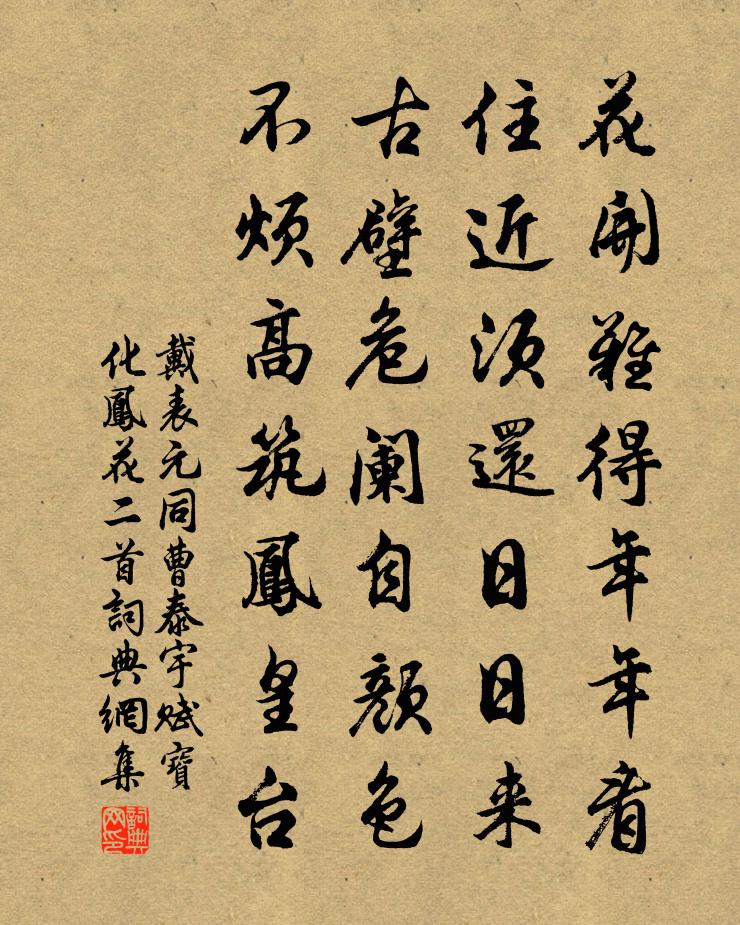 花開難得年年看
住近須還日日来
古壁危阑自顔色
不煩高筑鳳皇台
戴表元同曹泰宇赋寶
化鳳花二首詞典網集
詞典网印